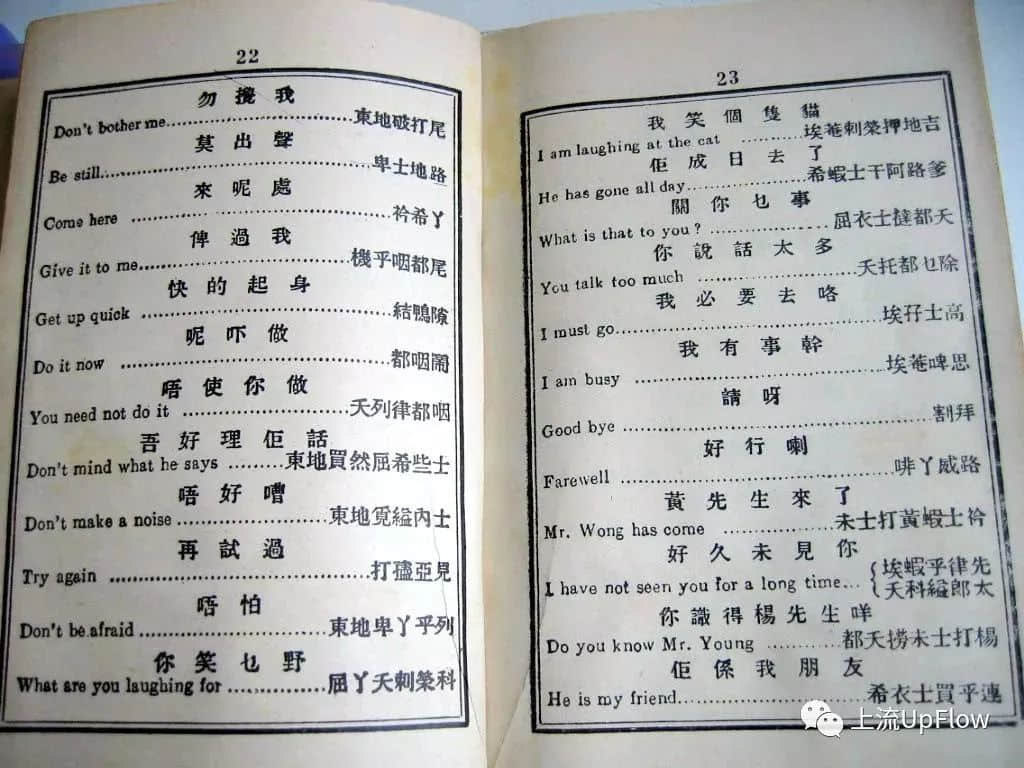 22
勿攪我
Don't bother me..........東地破打尾
莫出聲
Be still..........卑士地路
來呢處
Come here ..........衿希丫
俾過我
Give it to me..........機乎咽都尾
快的起身
Get up quick ..........結鴨隙
呢吓做
Do it now ..........都咽鬧
唔使你做
You need not do it ..........夭列律都咽
吾好理佢話
Don't mind what he says ..........東地買然屈希些士
唔好嘈
Don't make a noise..........東地覓縊內士
再試過
Try again ..........打孻亞見
唔怕
Don't be afraid..........東地卑丫乎列
你笑乜野
What are you laughing for ..........屈丫夭剌榮科
23
我笑個隻貓
I am laughing at the cat ..........埃菴剌榮押地吉
佢成日去了
He has gone all day..........希蝦士干阿路爹
關你乜事
What is that to you? ..........屈衣士撻都夭
你說話太多
You talk too much ..........夭托都乜除
我必要去咯
I must go..........埃孖士高
我有事幹
I am busy ..........埃菴啤思
請呀
Good bye ..........割拜
好行喇
Farewell ..........啡丫威路
黃先生來了
Mr. Wong has come ..........未士打黃蝦士衿
好久未見你
I have not seen you for a long time... {埃蝦乎律先
夭科縊郎太
你識得楊先生咩
Do you know Mr. Young ..........都夭撈未士打楊
佢係我朋友
He is my friend..........希衣士買乎連
上流UpFlow